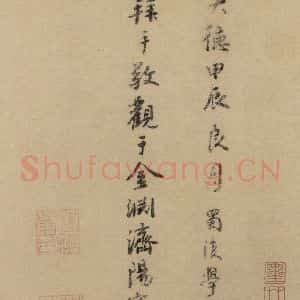 大德甲辰良月蜀後學
于敬觀于金淵濟陽
Shufawang.CN